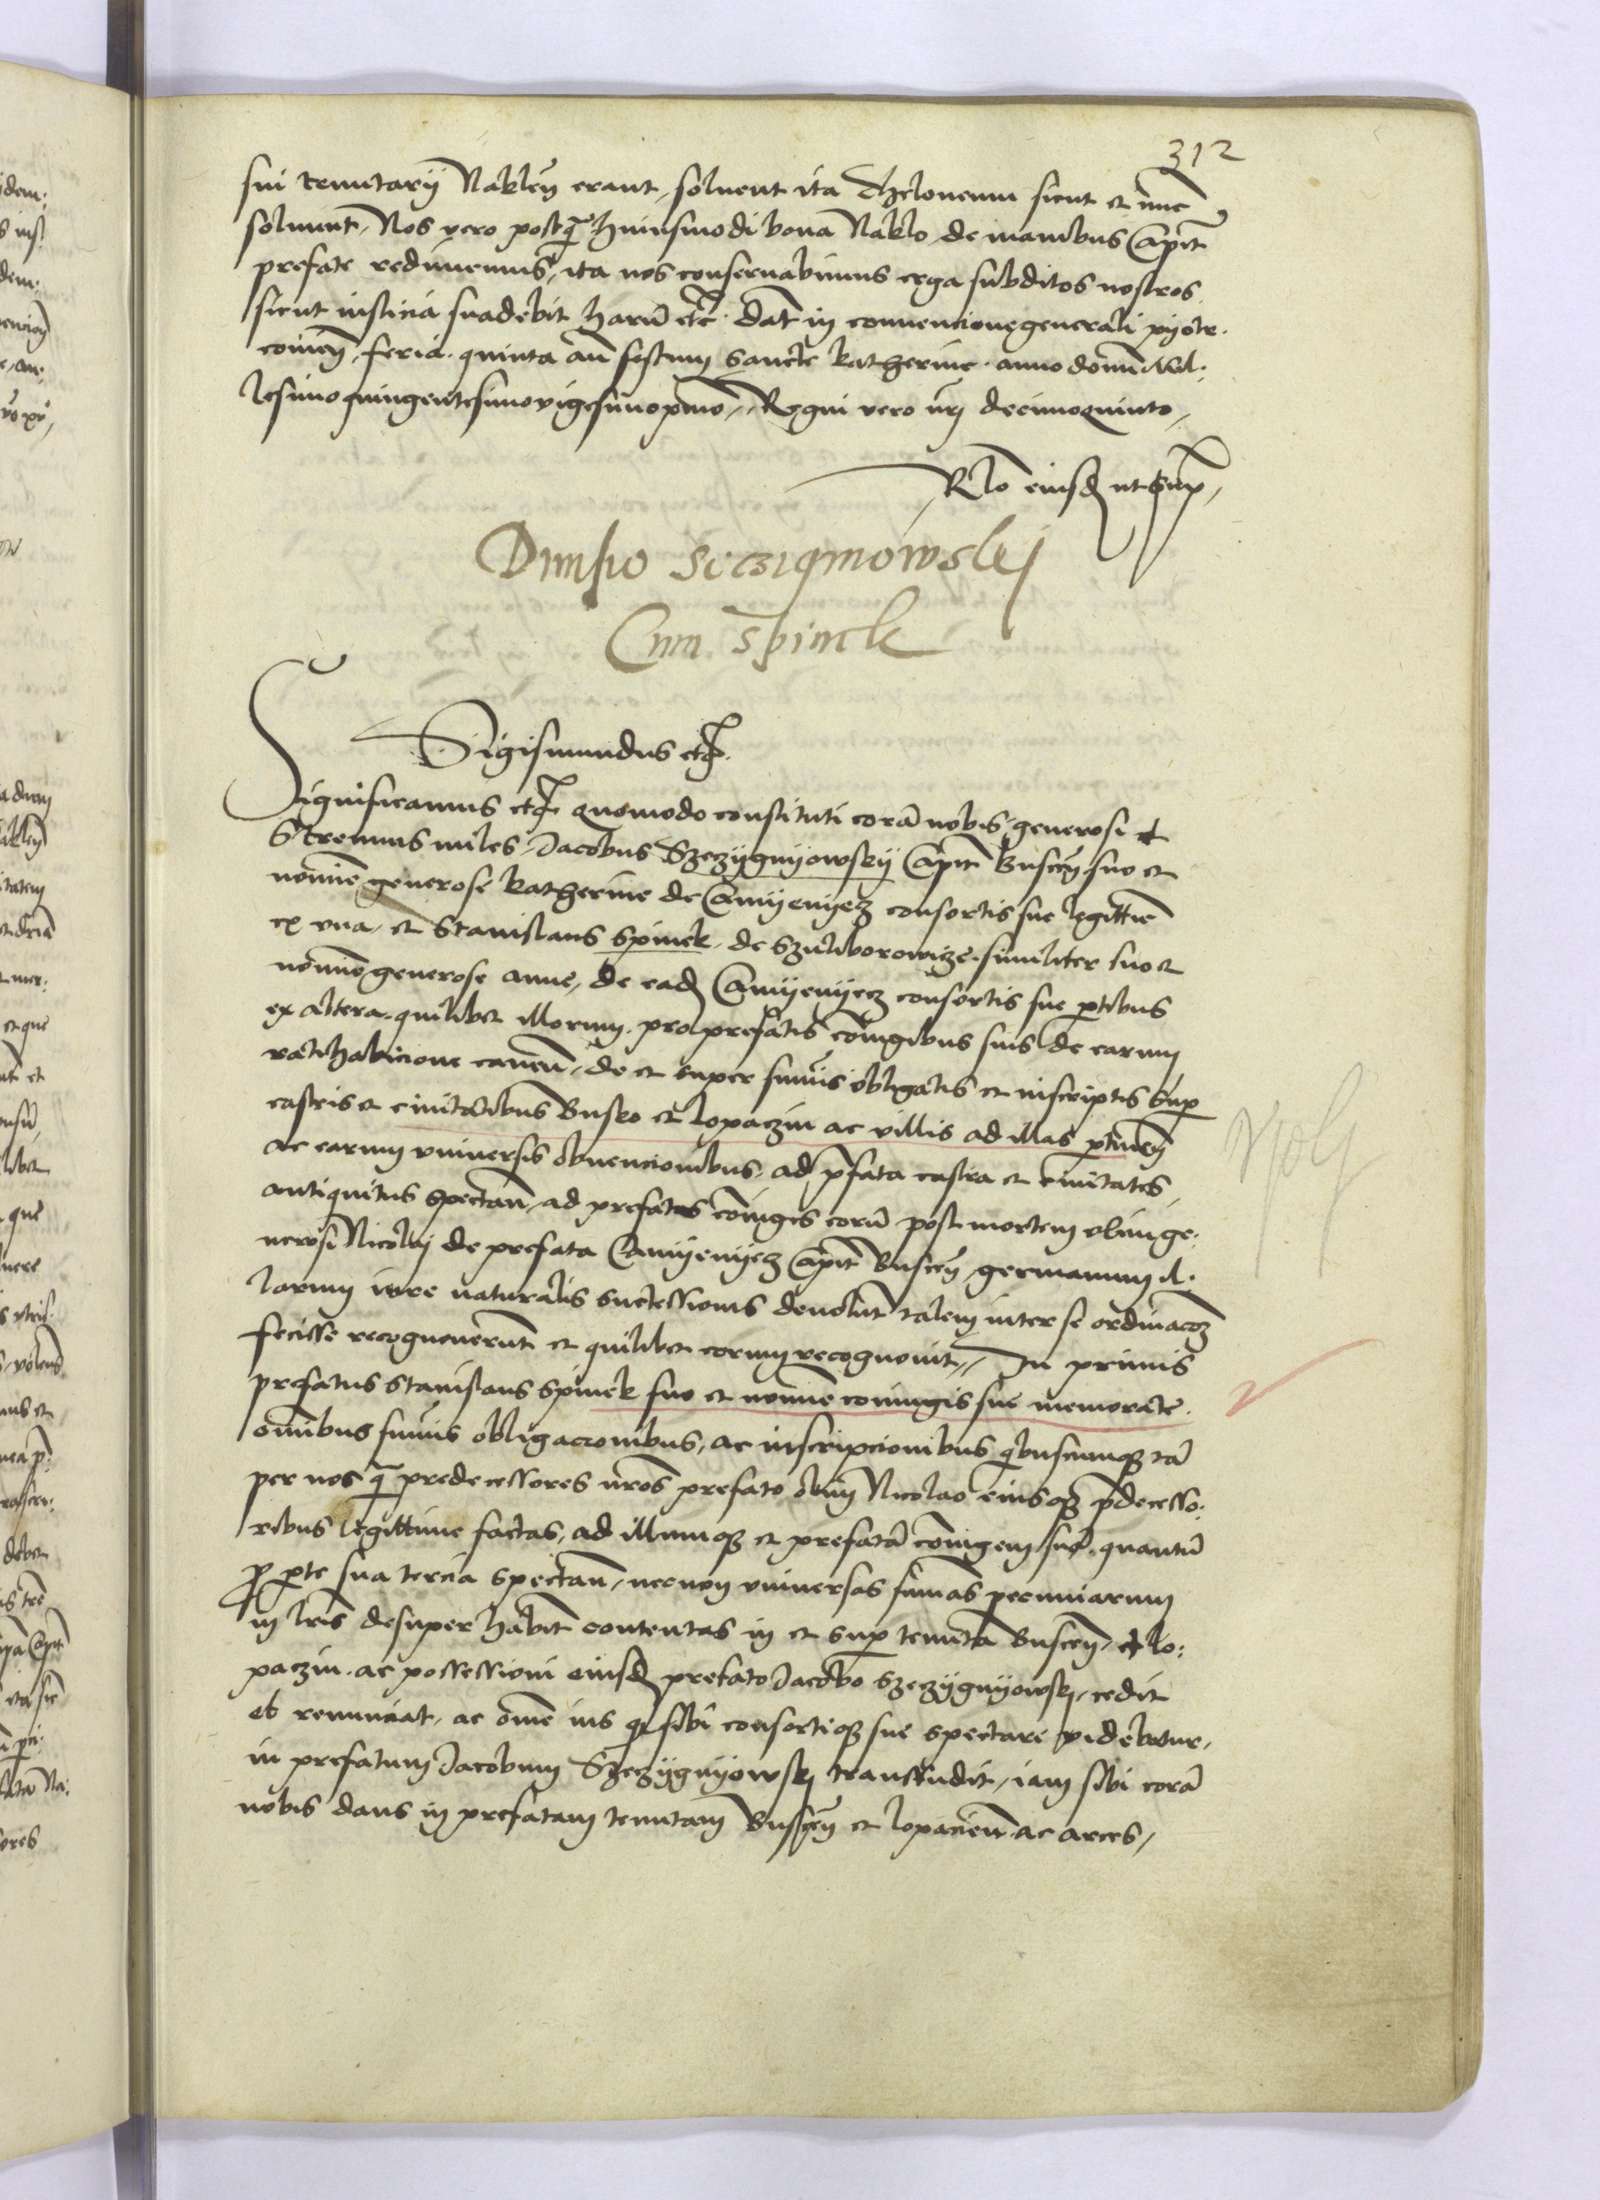 312
sui tenutarÿ Naklen̄ erant, soluent ita Theloneum sicut et nūc
soluunt, Nos vero postq̄ huiusmodi bona Naklo de manibus Capit̄
prefate redimemus, ita nos conseruabimus erga subditos nostros
sicut iusticia suadebit harū etc̄. Dat̄ in conuencione generali pyotr.
couien̄, feria quinta an̄ festum Sancte Katherine. anno domī Mil.
lesimo quingentesimo vigesimo pmo, Regni vero nrj decimoquinto,
Rlō eiusd̄ ut sup̄,
Diuisio Sczigmowskj
Cum Spinek
Sigismundus etc̄.
Significamus etc̄ quomodo constituti corā nobis, generosi et
Strenuus miles, Jacobus Szczÿgnÿowskÿ Capit̄ Buscen̄ suo et
nomīe generose Katherine de Camÿenÿecz consortis sue legittīe
ex vna, et Stanislaus Spinek, de Szuliborowicze. similiter suo et
nomīe generose Anne, de ead̄ Camÿenÿecz consortis sue ptibus
ex altera. quilibet illorum. pro prefatis coniugibus suis de earum
ratihabicione cauen̄, de et super sum̄is obligatis et inscriptis sup
castris et ciuitatibus Busko et Lopaczin ac villis ad illas ptinen̄
ac earum vniuersis obuencionibus. ad p̄fata castra et ciuitates,
antiquitus spectan̄, ad prefatas coniuges eorū post mortem olim ge.
nerosi Nicolaj de prefata Camÿenÿecz Capit̄ Buscen̄, germanum il.
larum iure naturalis successionis deuolut̄ talem inter se ordinacoȝ
fecisse recognouerunt et quilibet eorum recognouit, In primis
prefatus Stanislaus Spinek suo et nomīe coniugis sue memorate.
om̄ibus sum̄is obligacionibus, ac inscripcionibus qbuscumqȝ tā
per nos q̄ predecessores nr̄os prefato olim Nicolao eiusqȝ p̄decesso.
ribus legittime factas, ad illumqȝ et prefatā coniugem suā. quantū
p̄ pte sua tercia spectan̄, necnon vniuersas sum̄as pecuniarum
in lr̄is desuper habit̄ contentas in et sup tenuta Buscen̄, et Lo.
paczin. ac possessioni eiusd̄ prefato Jacobo Szczÿgnÿowskj, cedit
et renunciat, ac om̄e ius qd̄ sibi consortiqȝ sue spectare videbatur,
in prefatum Jacobum Szczÿgnÿowskj transfudit, iam sibi corā
nobis dans in prefatam tenutam Buscen̄ et Lopacien̄ ac arces,